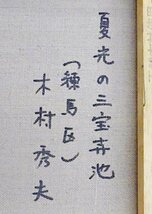 夏光の三宝寺池
(練馬区)
木村秀夫